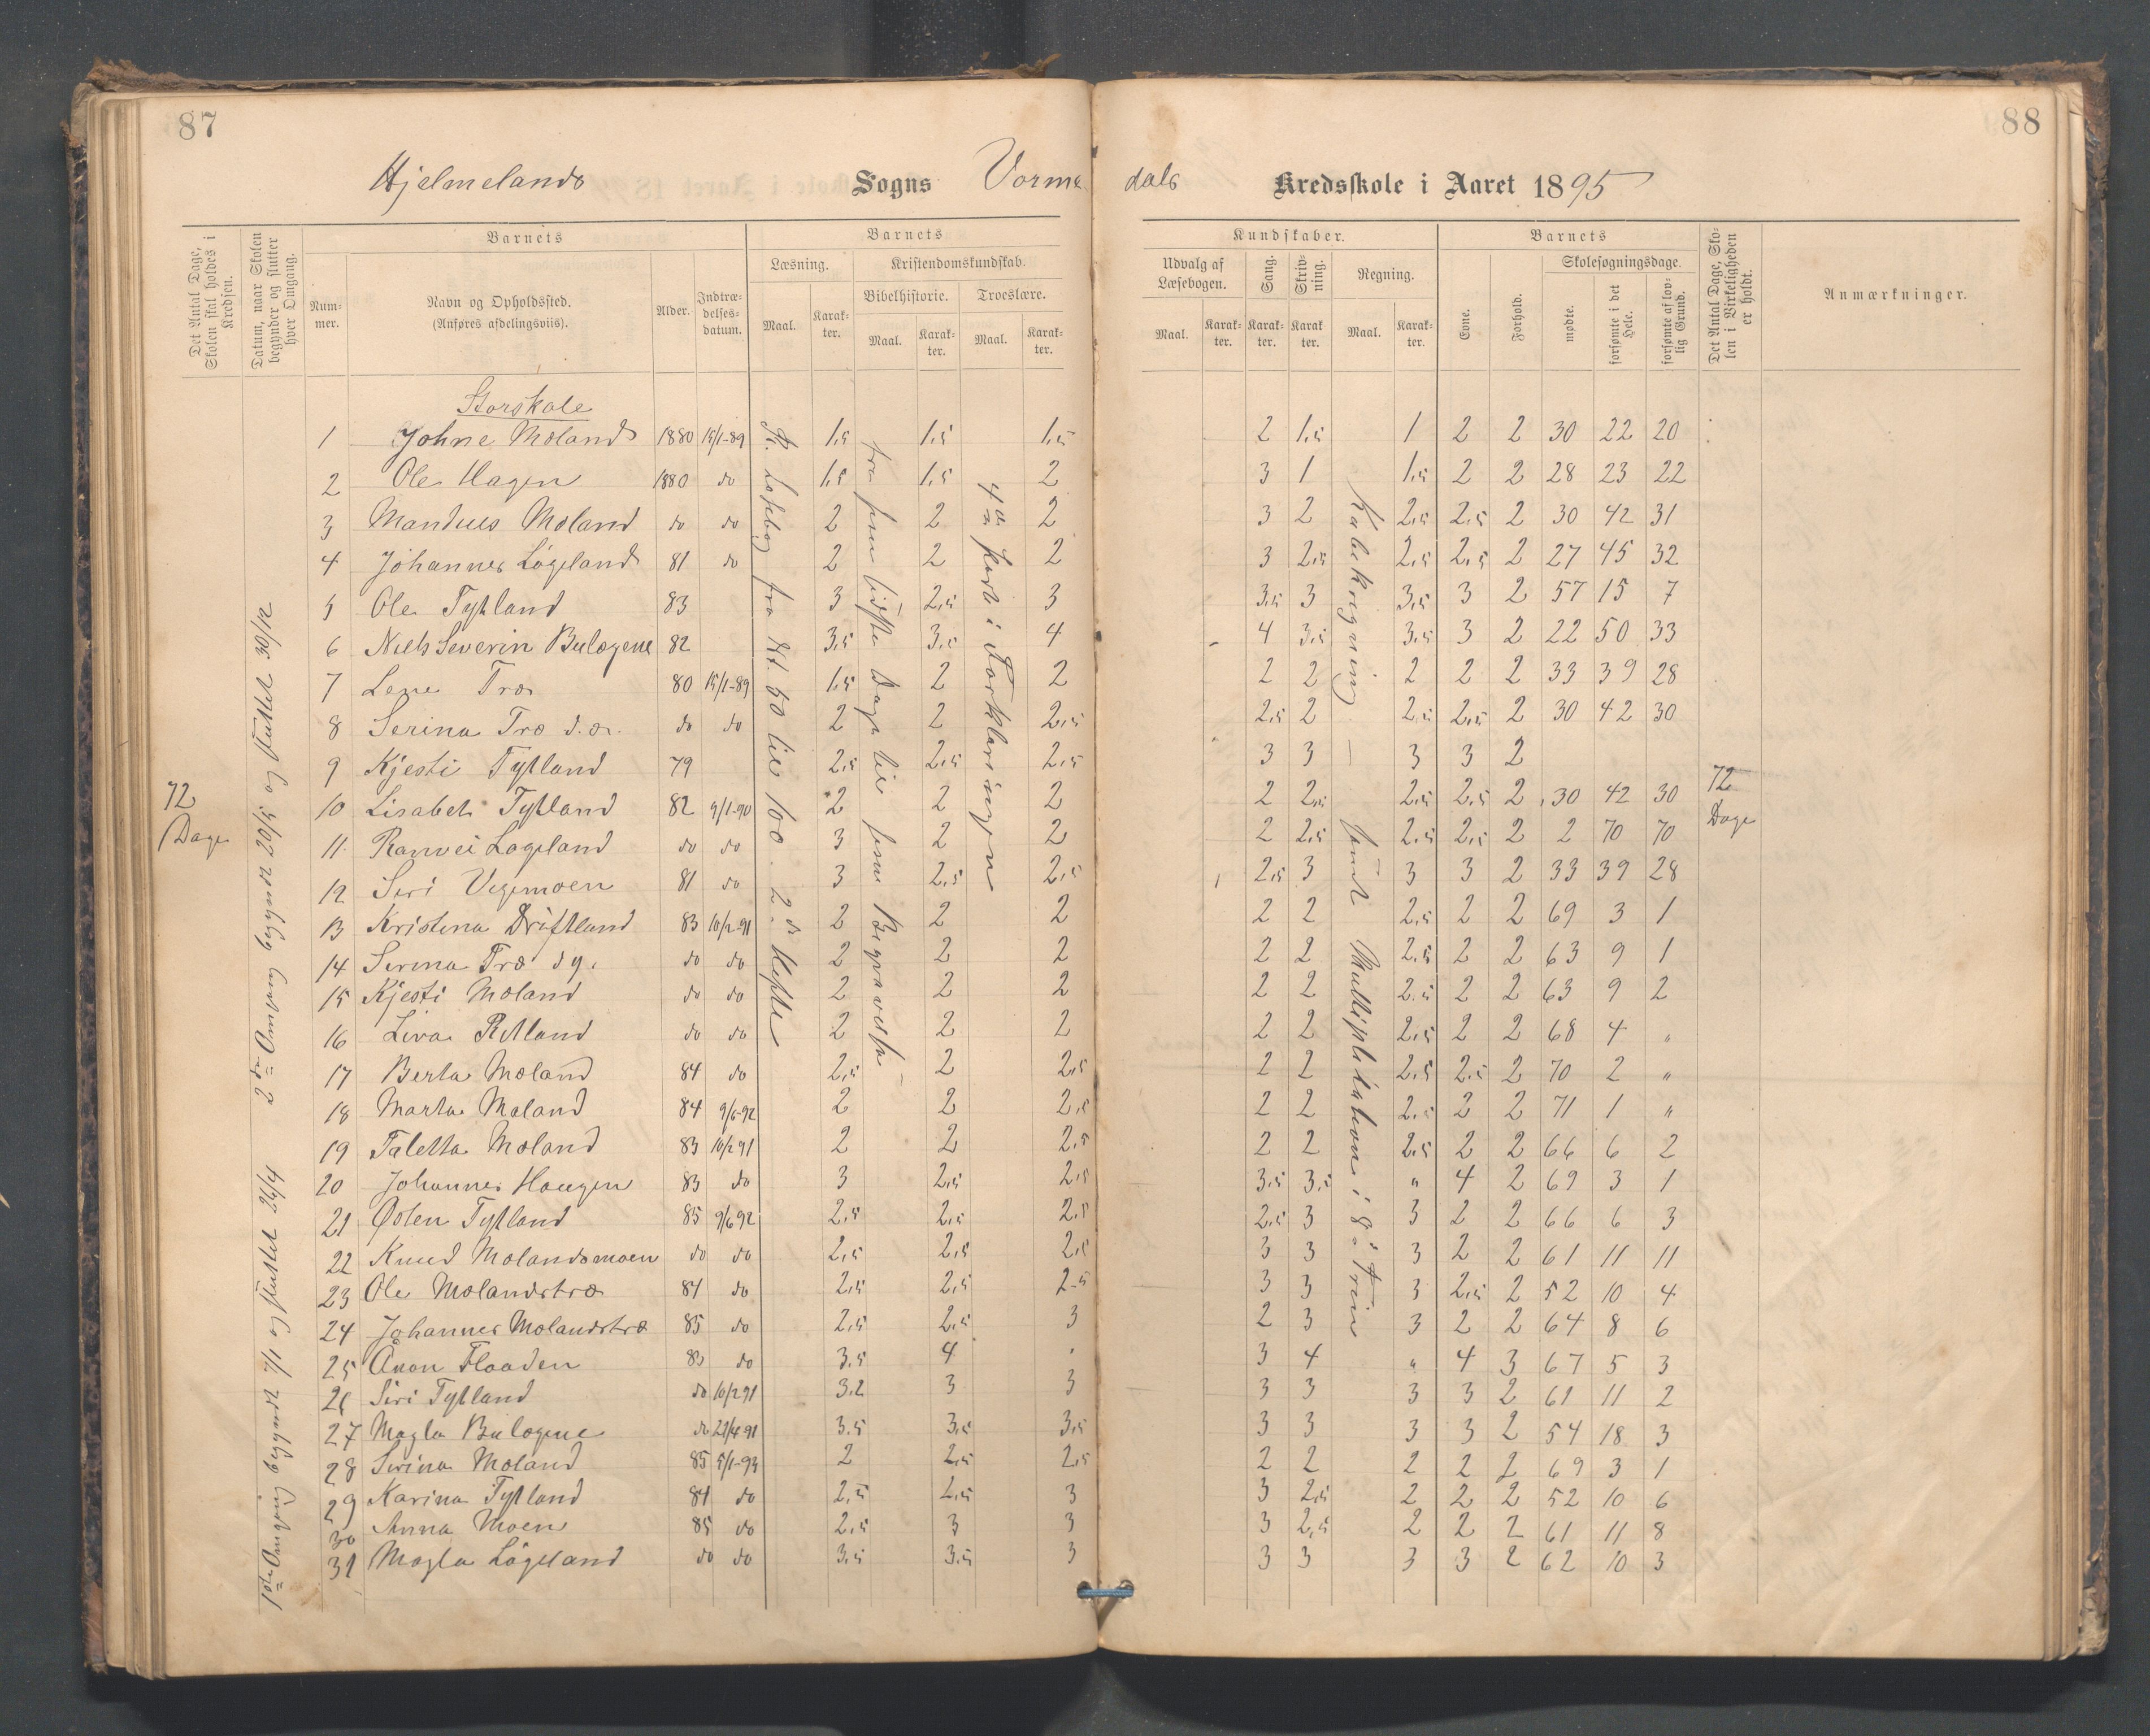 87
88
Hjelmelands Sogns Vorme dals Kredsskole i Aaret 1895
Det Antal Dage, Skolen skal holdes i Kredsen.
Datum, naar Skolen begynder og slutter hver Omgang.
Barnets
Nummer.
Navn og Opholdssted.
(Anføres afdelingsviis).
Alder.
Indtrædelsesdatum.
Barnets
Læsning.
Maal.
Karakter.
Kristendomskundskab.
Bibelhistorie.
Maal.
Karakter.
Troeslære.
Maal.
Karakter.
Kundskaber.
Udvalg af Læsebogen.
Maal.
Karakter.
Sang.
Karakter.
Skrivning.
Karakter.
Regning.
Maal.
Karakter.
Barnets
Evne.
Forhold.
Skolesøgningsdage.
mødte.
forsømte i det Hele.
forsømte af lovlig Grund.
Det Antal Dage, Skolen i Virkeligheden er holdt.
Anmærkninger.
72 Dage
1ste Omgang begyndt 7/1 og sluttet 26/4
2den Omgang begyndt 20/5 og sluttet 30/12
Storskole
1 Johne Moland 1880 15/1-89 1,5 1,5 1,5 2 1,5 1 2 2 30 22 20
2 Ole Hagen 1880 do 1,5 1,5 2 3 1 1,5 2 2 28 23 22
3 Mandius Moland do do 2 2 2 3 2 2,5 2,5 2 30 42 31
4 Johannes Løgeland 81 do 2 2 2 3 2,5 2,5 2,5 2 27 45 32
5 Ole Tytland 83 3 2,5 3 3,5 3 3,5 3 2 57 15 7
6 Niels Severin Bulægene 82 3,5 3,5 4 4 3,5 3,5 3 2 22 50 33
7 Lene Træ 80 15/1-89 1,5 2 2 2 2 2 2 2 33 39 28
8 Serina Træ d.æ. do do 2 2 2,5 2,5 2 2,5 2,5 2 30 42 30
9 Kjesti Tytland 79 2,5 2,5 2,5 3 3 3 3 2
10 Lisabet Tytland 82 9/1-90 2 2 2 2 2,5 2,5 2,5 2 30 42 30
11 Ranvei Løgeland do do 3 2 2 2 2,5 2,5 2,5 2 2 70 70
12 Siri Vegemoen 81 do 3 2,5 2,5 2,5 3 3 3 2 33 39 28
13 Kristina Driftland 83 10/2-91 2 2 2 2 2 2,5 2 2 69 3 1
14 Serina Træ d.y. do do 2 2 2 2 2 2,5 2 2 63 9 1
15 Kjesti Moland do do 2 2 2 2 2 2,5 2 2 63 9 2
16 Liva Retland do do 2 2 2 2 2 2,5 2 2 68 4 "
17 Berta Moland 84 do 2,5 2 2,5 2 2 2,5 2,5 2 70 2 "
18 Marta Moland 84 9/6-92 2 2 2,5 2 2 2,5 2 2 71 1 "
19 Taletta Moland 83 10/2 91 2 2 2,5 2 2 2,5 2 2 66 6 2
20 Johannes Haugen 83 do 3 2,5 2,5 3,5 3,5 " 4 2 69 3 1
21 Østen Tytland 85 9/6 92 2,5 2,5 2,5 2,5 3 3 2 2 66 6 3
22 Knud Molandsmoen do do 2,5 2,5 2,5 3 3 3 2 2 61 11 11
23 Ole Molandstræ 84 do 2,5 2,5 2,5 3 3 3 2,5 2 52 10 4
24 Johannes Molandstræ 85 do 2,5 2,5 3 2 3 3 2 2 64 8 6
25 Flaaden 83 do 3,5 4 3 4 " 4 3 67 5 3
26 Siri Tytland do 10/2 91 3,2 3 3 3 3 3 3 2 61 11 2
27 Magla Bulægene do 21/4 91 3,5 3,5 3,5 3 3 3 3 2 54 18 3
28 Serina Moland 85 5/1-93 2 2,5 2,5 2 2 2 2 2 69 3 1
29 Karina Tytland 84 do 2,5 2,5 3 3 2,5 2 2 2 52 10 6
30 Anna Moen 85 do 2,5 3 3 3 2,5 2 2 2 61 11 8
31 Magla Løgeland do do 3,5 3,5 3 3 3 3 3 2 62 10 3
Læsebog fra St. 50 til 100. 2det Hefte
fra sidste Dage til Begravelse
4de Part i Forklaringen
Multiplikation i 8de Trin
72 Dage